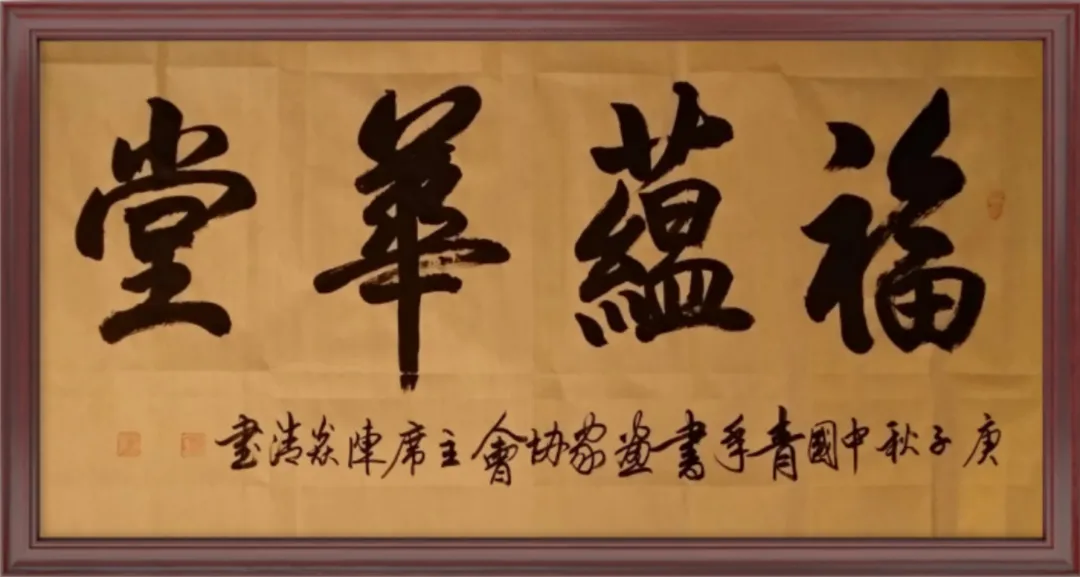 福蘊華堂
庚子秋中國青年書畫家協會主席陳焱清書